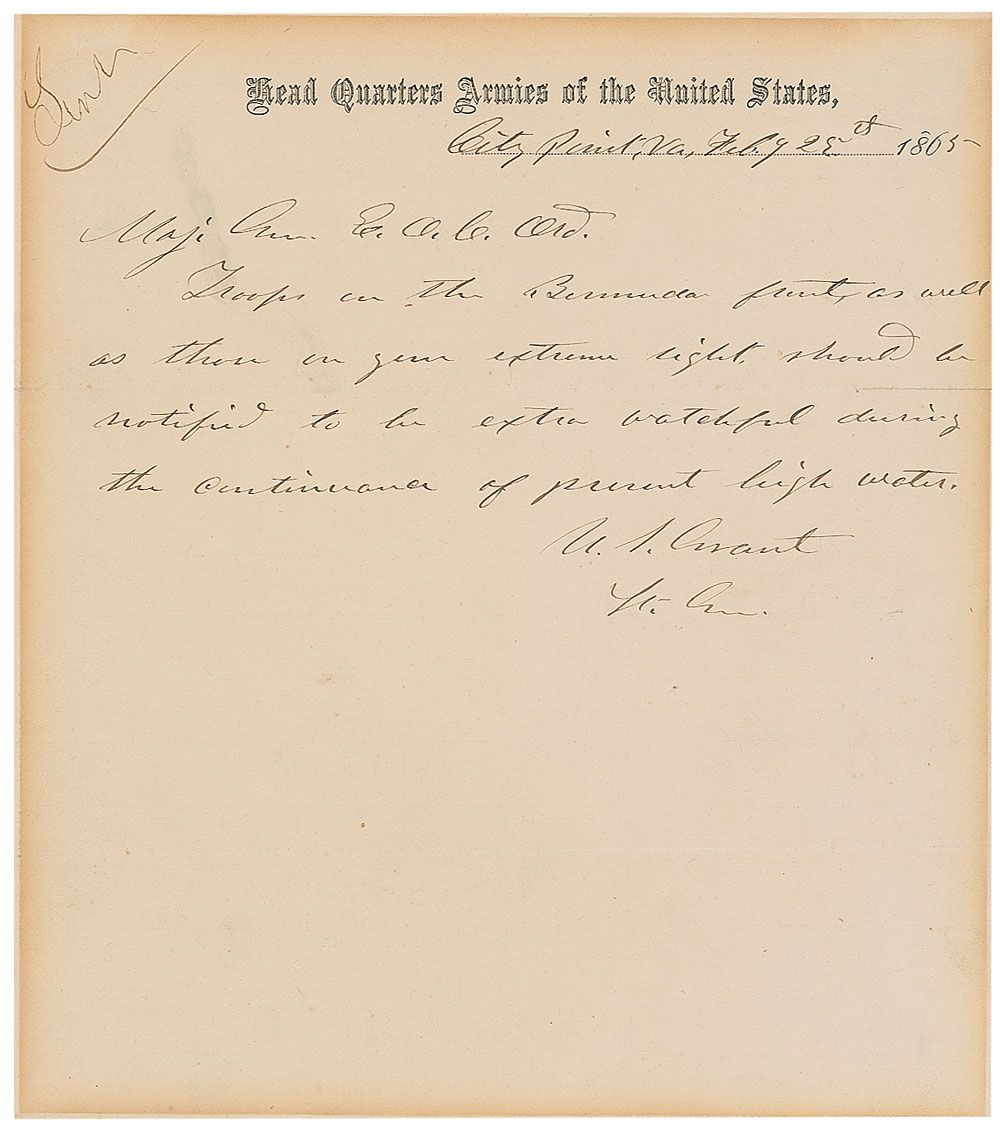 Sent
Head Quarters Armies of the United States,
City Point, Va, Feby 25th 1865
Maj. Gen. E. O. C. Ord.
Troops on the Bermuda front, as well
as those on your extreme right, should be
notified to be extra watchful during
the continuance of present high water.
U. S. Grant
Lt. Gen.